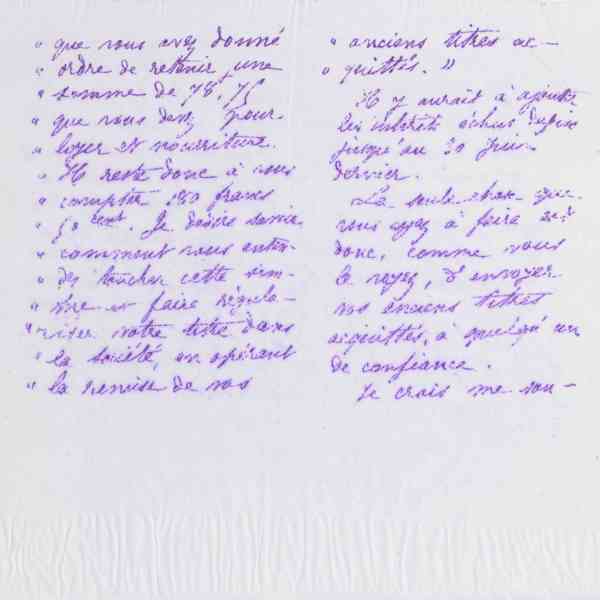 " que vous avez donné
" ordre de retenir une
" somme de 78,75
" que vous devez pour
" loyer et nourriture.
" Il reste donc à vous
" compter 180 francs
" 50 cent. Je désire savoir
" comment vous enten-
" dez toucher cette som-
" me et faire régula-
" riser votre titre dans
" la Société, en opérant
" la remise de vos
" anciens titres ac-
" quittés. "
Il y aurait à ajouter
les intérêts échus depuis
jusqu'au 30 juin
dernier.
La seule chose que
vous ayez à faire est
donc, comme vous
le voyez, d'envoyer
vos anciens titres
acquittés, à quelqu'un
de confiance.
Je crois me sou-